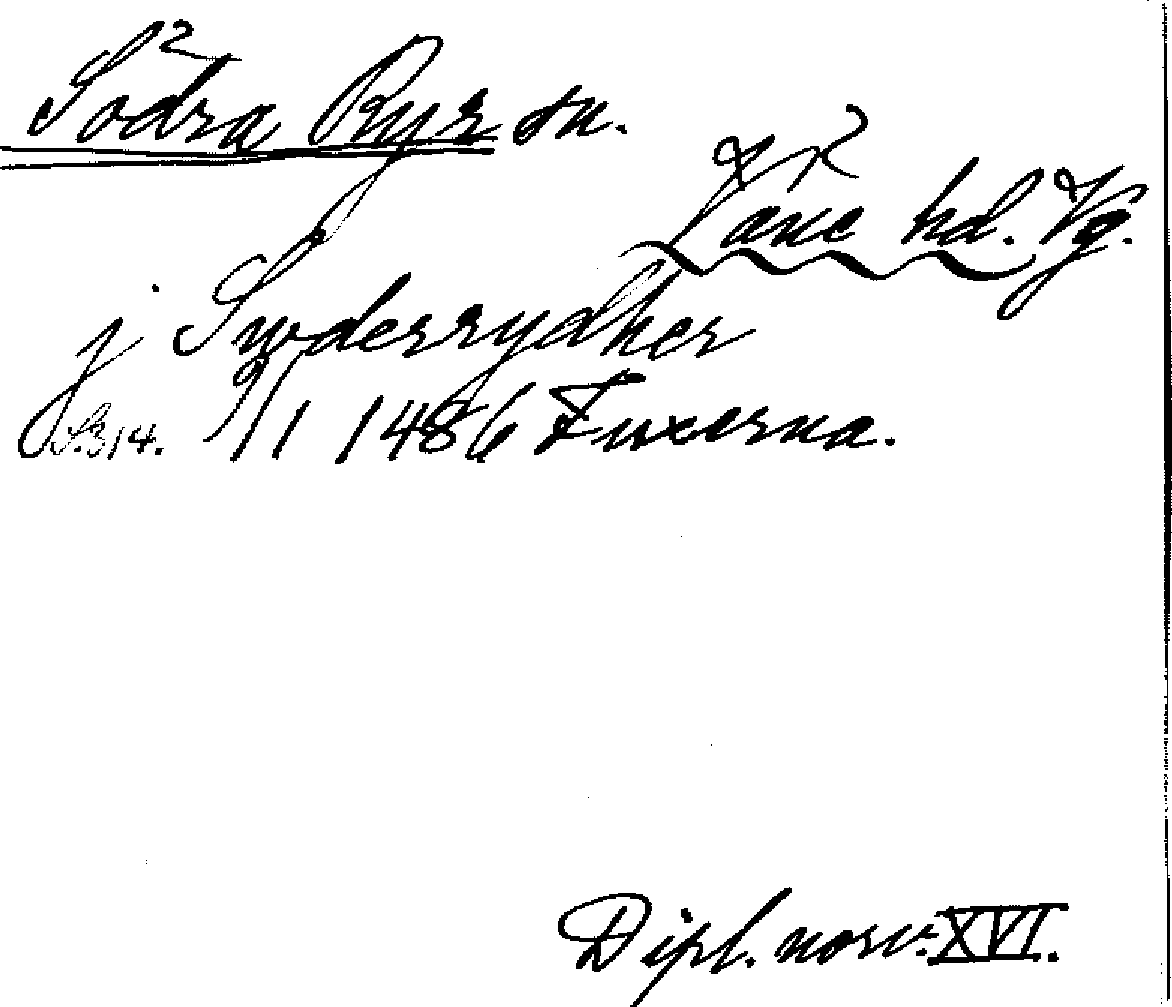 Södra Ryr sn.
Väne hd. Vg.
j Swderrydher
S. 314. 9/1 1486 Fuxerna.
Dipl. norv. XVI.